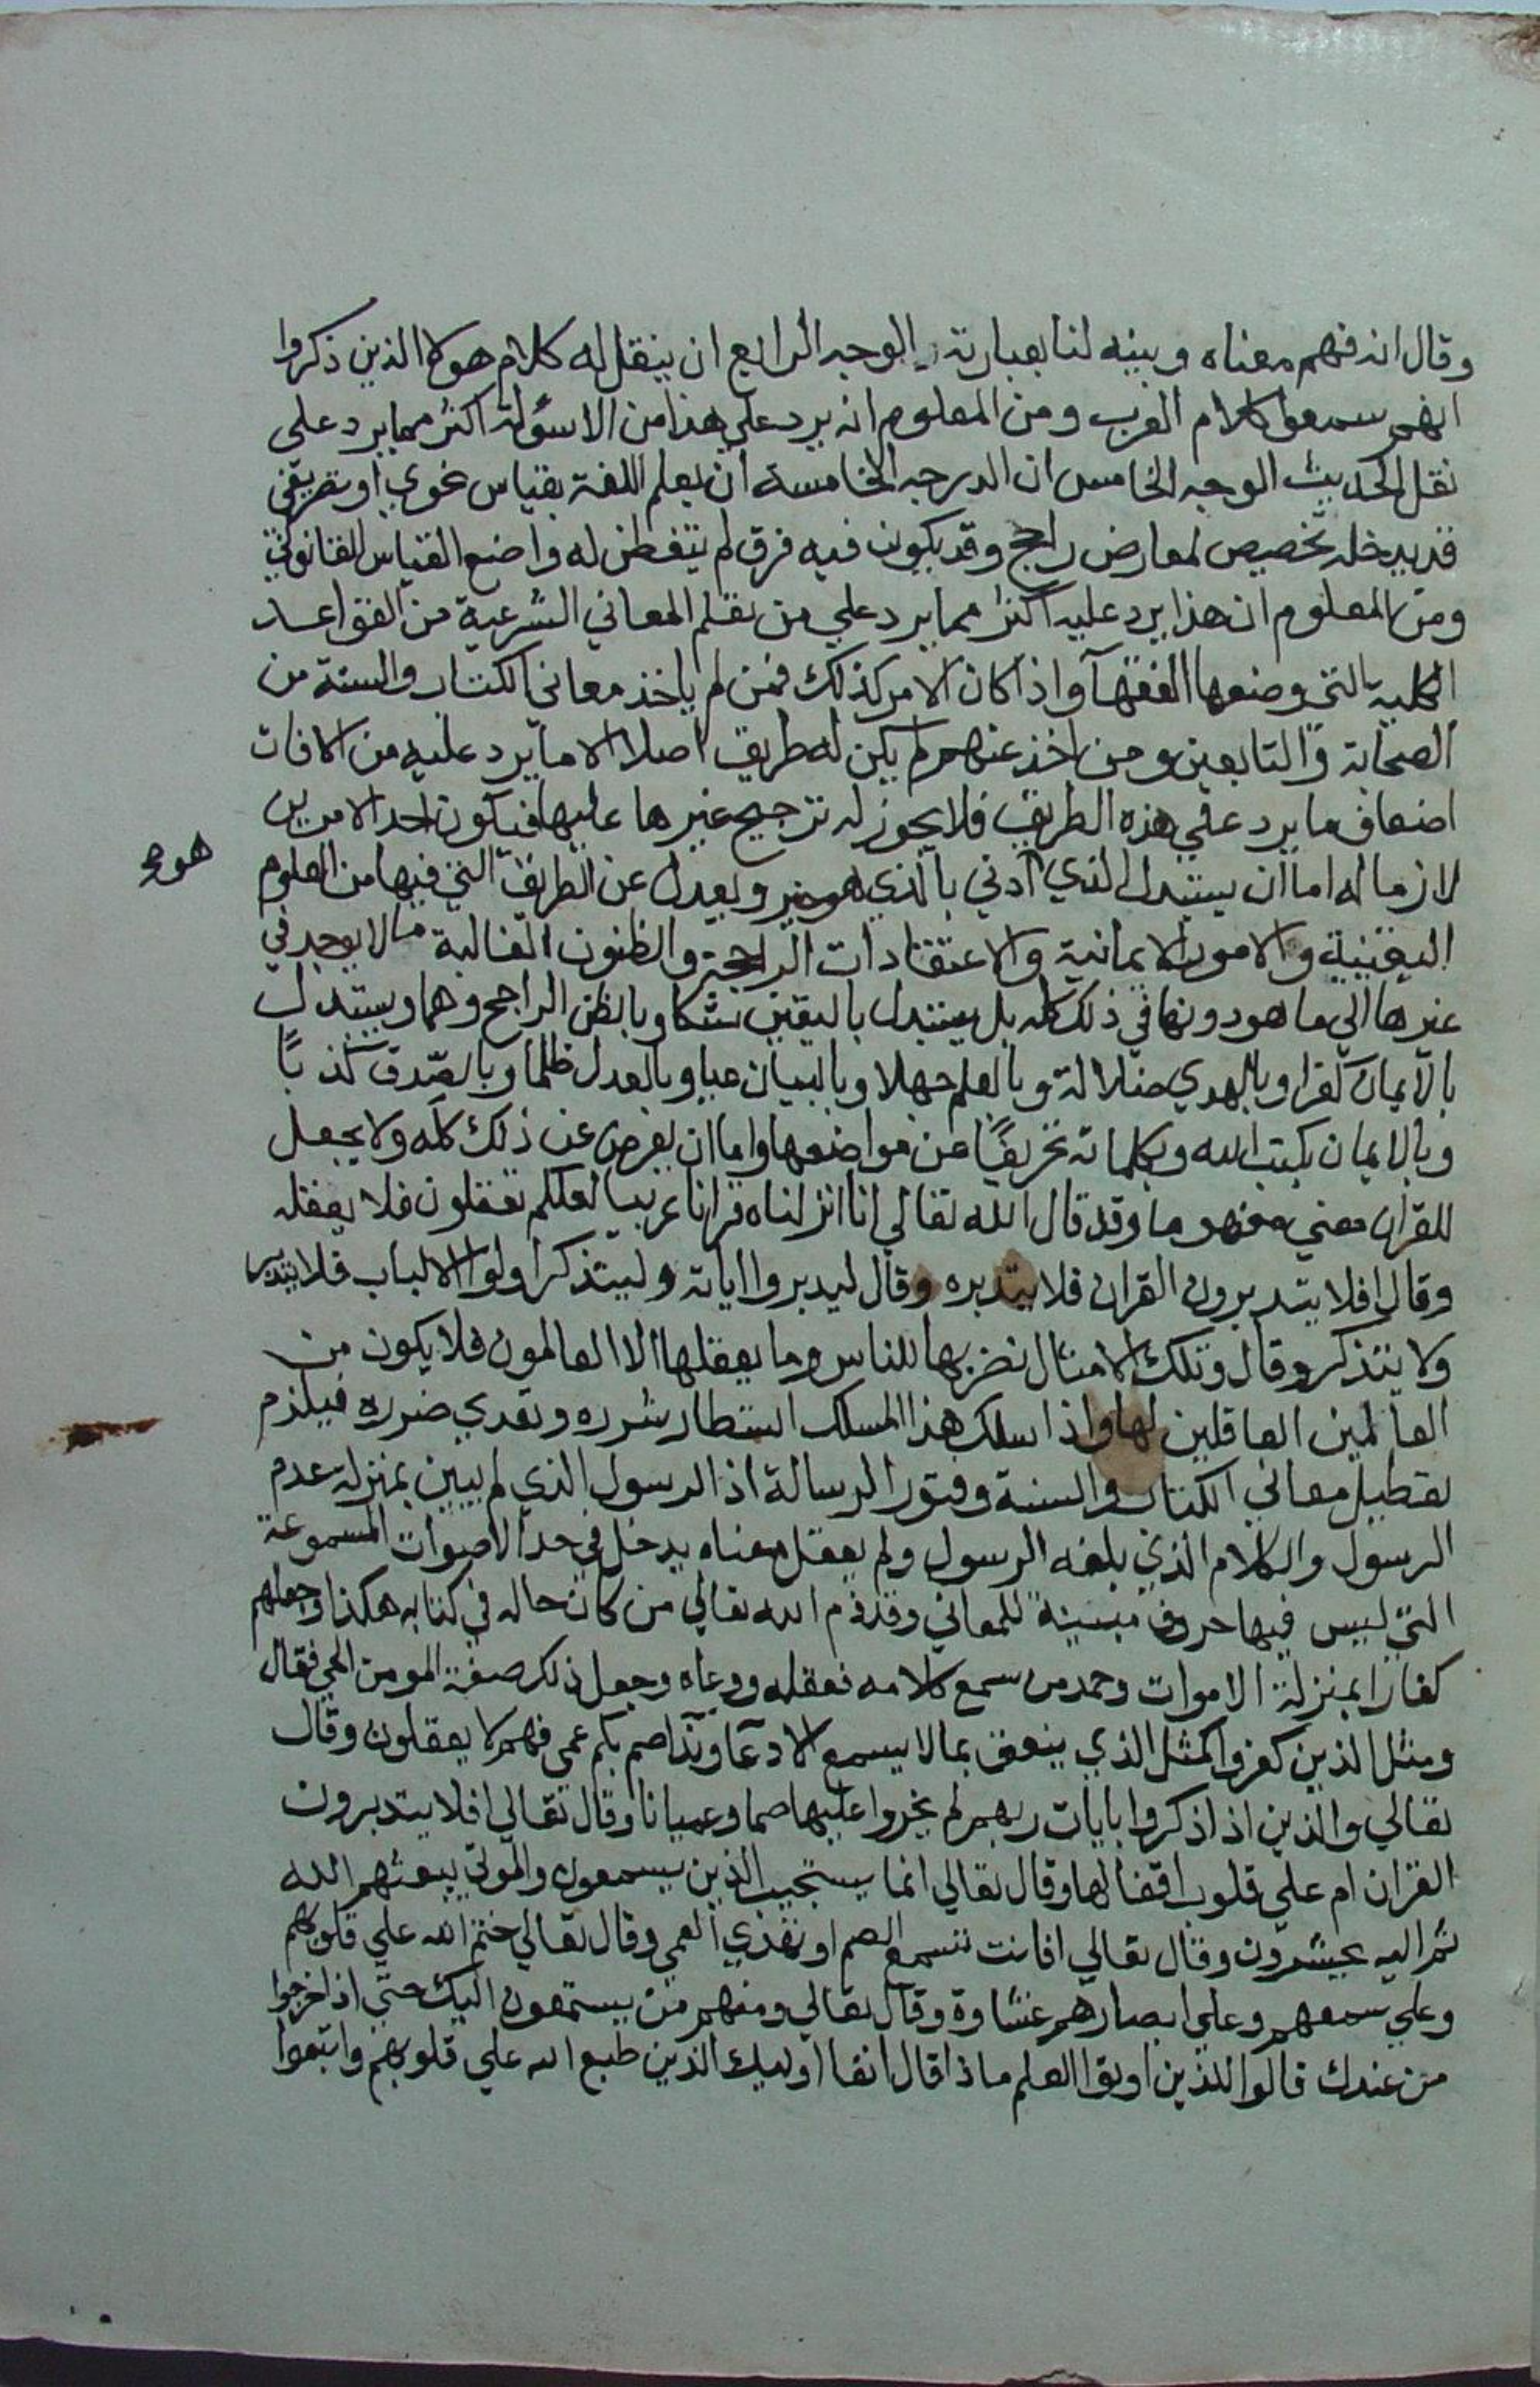 وقال انه فهم معناه وبينه لنا بعبارته الوجه الرابع ان ينقل له كلام هولا الذين ذكروا
انهم سمعوا كلام العرب ومن المعلوم انه يرد علي هذا من الاسولة اكثر مما يرد على
نقل الحديث الوجه الخامس ان الدرجه الخامسة ان يعلم اللغة بقياس نحوي او تصريفي
قد يدخله تخصيص لمعارض راجح وقد يكون فيه فرق لم يتفطن له واضع القياس القانوني
ومن المعلوم ان هذا يرد عليه اكثر مما يرد علي من تعلم المعاني الشرعية من القواعد
الكليه التي وضعها الفقهآ واذا كان الامر كذلك فمن لم ياخذ معاني الكتاب والسنة من
الصحابة والتابعين ومن اخذ عنهم لم يكن له طريق اصلا الا ما يرد عليه من الافات
اضعاف ما يرد علي هذه الطريق فلا يجوز له ترجيح غيرها عليها فيكون احد الامرين
لازما له اما ان يستبدل الذي ادني بالذي هو خير ويعدل عن الطريق التي فيها من العلوم
هو
اليقينية والامور الايمانية والاعتقادات الراجحة والظنون الغالبة ما لا يوجد في
غيرها الي ما هو دونها في ذلك كله بل يستبدل باليقين شكا وبالظن الراجح وهما ويستبدل
بالايمان كفرا وبالهدي ضلالة وبالعلم جهلا وبالبيان عيا وبالعدل ظلما وبالصدق كذبًا
وبالايمان بكتب الله وبكلماته تحريفًا عن مواضعها واما ان يعرض عن ذلك كله ولا يجعل
للقران معني مفهوما وقد قال الله تعالي انا انزلناه قرانا عربيا لعلكم تعقلون فلا يعقله
وقال افلا يتدبرون القران فلا يتدبره وقال ليدبروا اياته وليتذكر اولوا الالباب فلا يتدبر
ولا يتذكر وقال وتلك الامثال نضربها للناس وما يعقلها الا العالمون فلا يكون من
العالمين العاقلين لها واذا سلك هذا المسلك استطار شرره وتعدي ضرره فيلزم
تعطيل معاني الكتاب والسنة وفتور الرسالة اذ الرسول الذي لم يبين بمنزلة عدم
الرسول والكلام الذي بلغه الرسول ولم يعقل معناه يدخل في حد الاصوات المسموعة
التي ليس فيها حروف مبينة للمعاني وقد ذم الله تعالي من كان حاله في كتابه هكذا وجعلهم
كفارا بمنزلة الاموات وحمد من سمع كلامه فعقله ووعاه وجعل ذلك صفة المومن الحي فقال
ومثل الذين كفروا كمثل الذي ينعق بما لا يسمع الا دعآ وندآ صم بكم عمي فهم لا يعقلون وقال
تعالي والذين اذا ذكروا بايات ربهم لم يخروا عليها صما وعميانا وقال تعالي افلا يتدبرون
القران ام علي قلوب اقفالها وقال تعالي انما يستجيب الذين يسمعون والموتي يبعثهم الله
ثم اليه يحشرون وقال تعالي افانت تسمع الصم او تهدي العمي وقال تعالي ختم الله علي قلوبهم
وعلي سمعهم وعلي ابصارهم غشاوة وقال تعالي ومنهم من يستمعون اليك حتي اذا خرجوا
من عندك قالوا للذين اوتوا العلم ماذا قال انفا اوليك الذين طبع الله علي قلوبهم واتبعوا